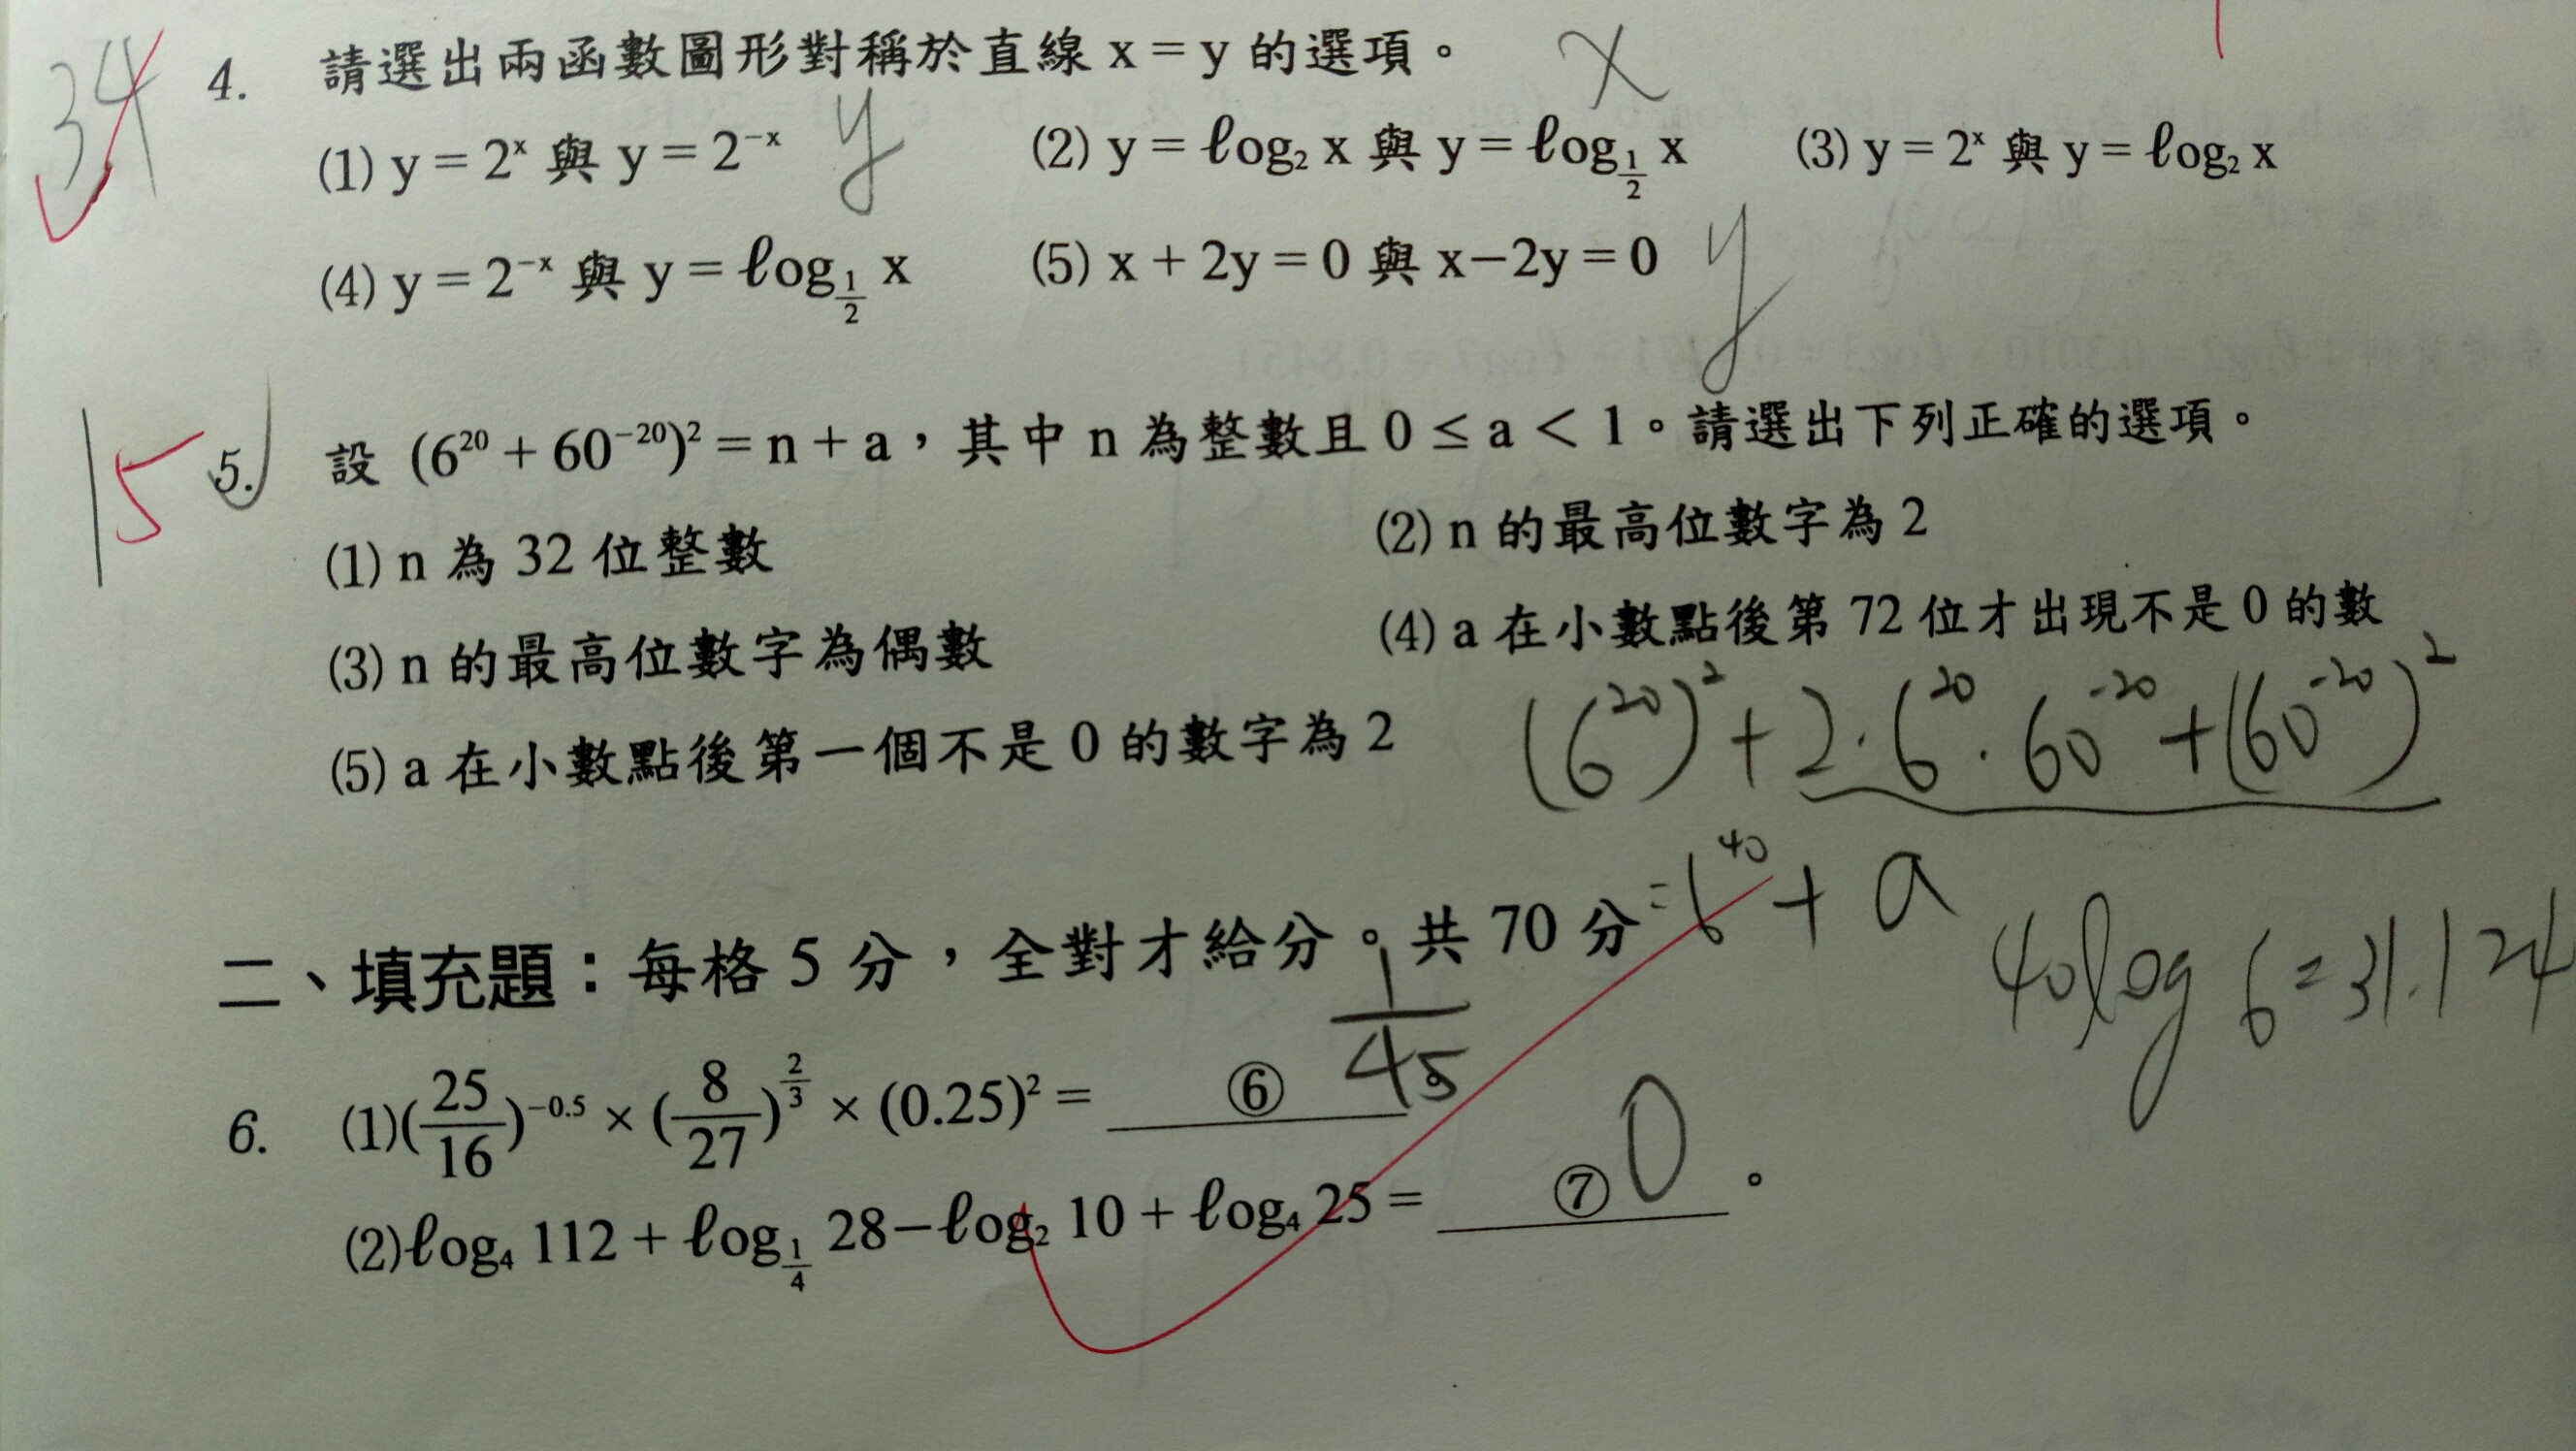 34
4. 請選出兩函數圖形對稱於直線 x = y 的選項。
x
(1) y = 2ˣ 與 y = 2⁻ˣ y (2) y = ℓog₂ x 與 y = ℓog_{1/2} x (3) y = 2ˣ 與 y = ℓog₂ x
(4) y = 2⁻ˣ 與 y = ℓog_{1/2} x (5) x + 2y = 0 與 x−2y = 0 y
15
5. 設 (6²⁰ + 60⁻²⁰)² = n + a，其中 n 為整數且 0 ≤ a < 1。請選出下列正確的選項。
(1) n 為 32 位整數 (2) n 的最高位數字為 2
(3) n 的最高位數字為偶數 (4) a 在小數點後第 72 位才出現不是 0 的數
(5) a 在小數點後第一個不是 0 的數字為 2
(6²⁰)² + 2·6²⁰·60⁻²⁰ + (60⁻²⁰)²
= 6⁴⁰ + a
40log 6 = 31.124
二、填充題：每格 5 分，全對才給分。共 70 分
6. (1)(25/16)^{-0.5} × (8/27)^{2/3} × (0.25)² = ⑥ 1/45
(2)ℓog₄ 112 + ℓog_{1/4} 28−ℓog₂ 10 + ℓog₄ 25 = ⑦ 0 。